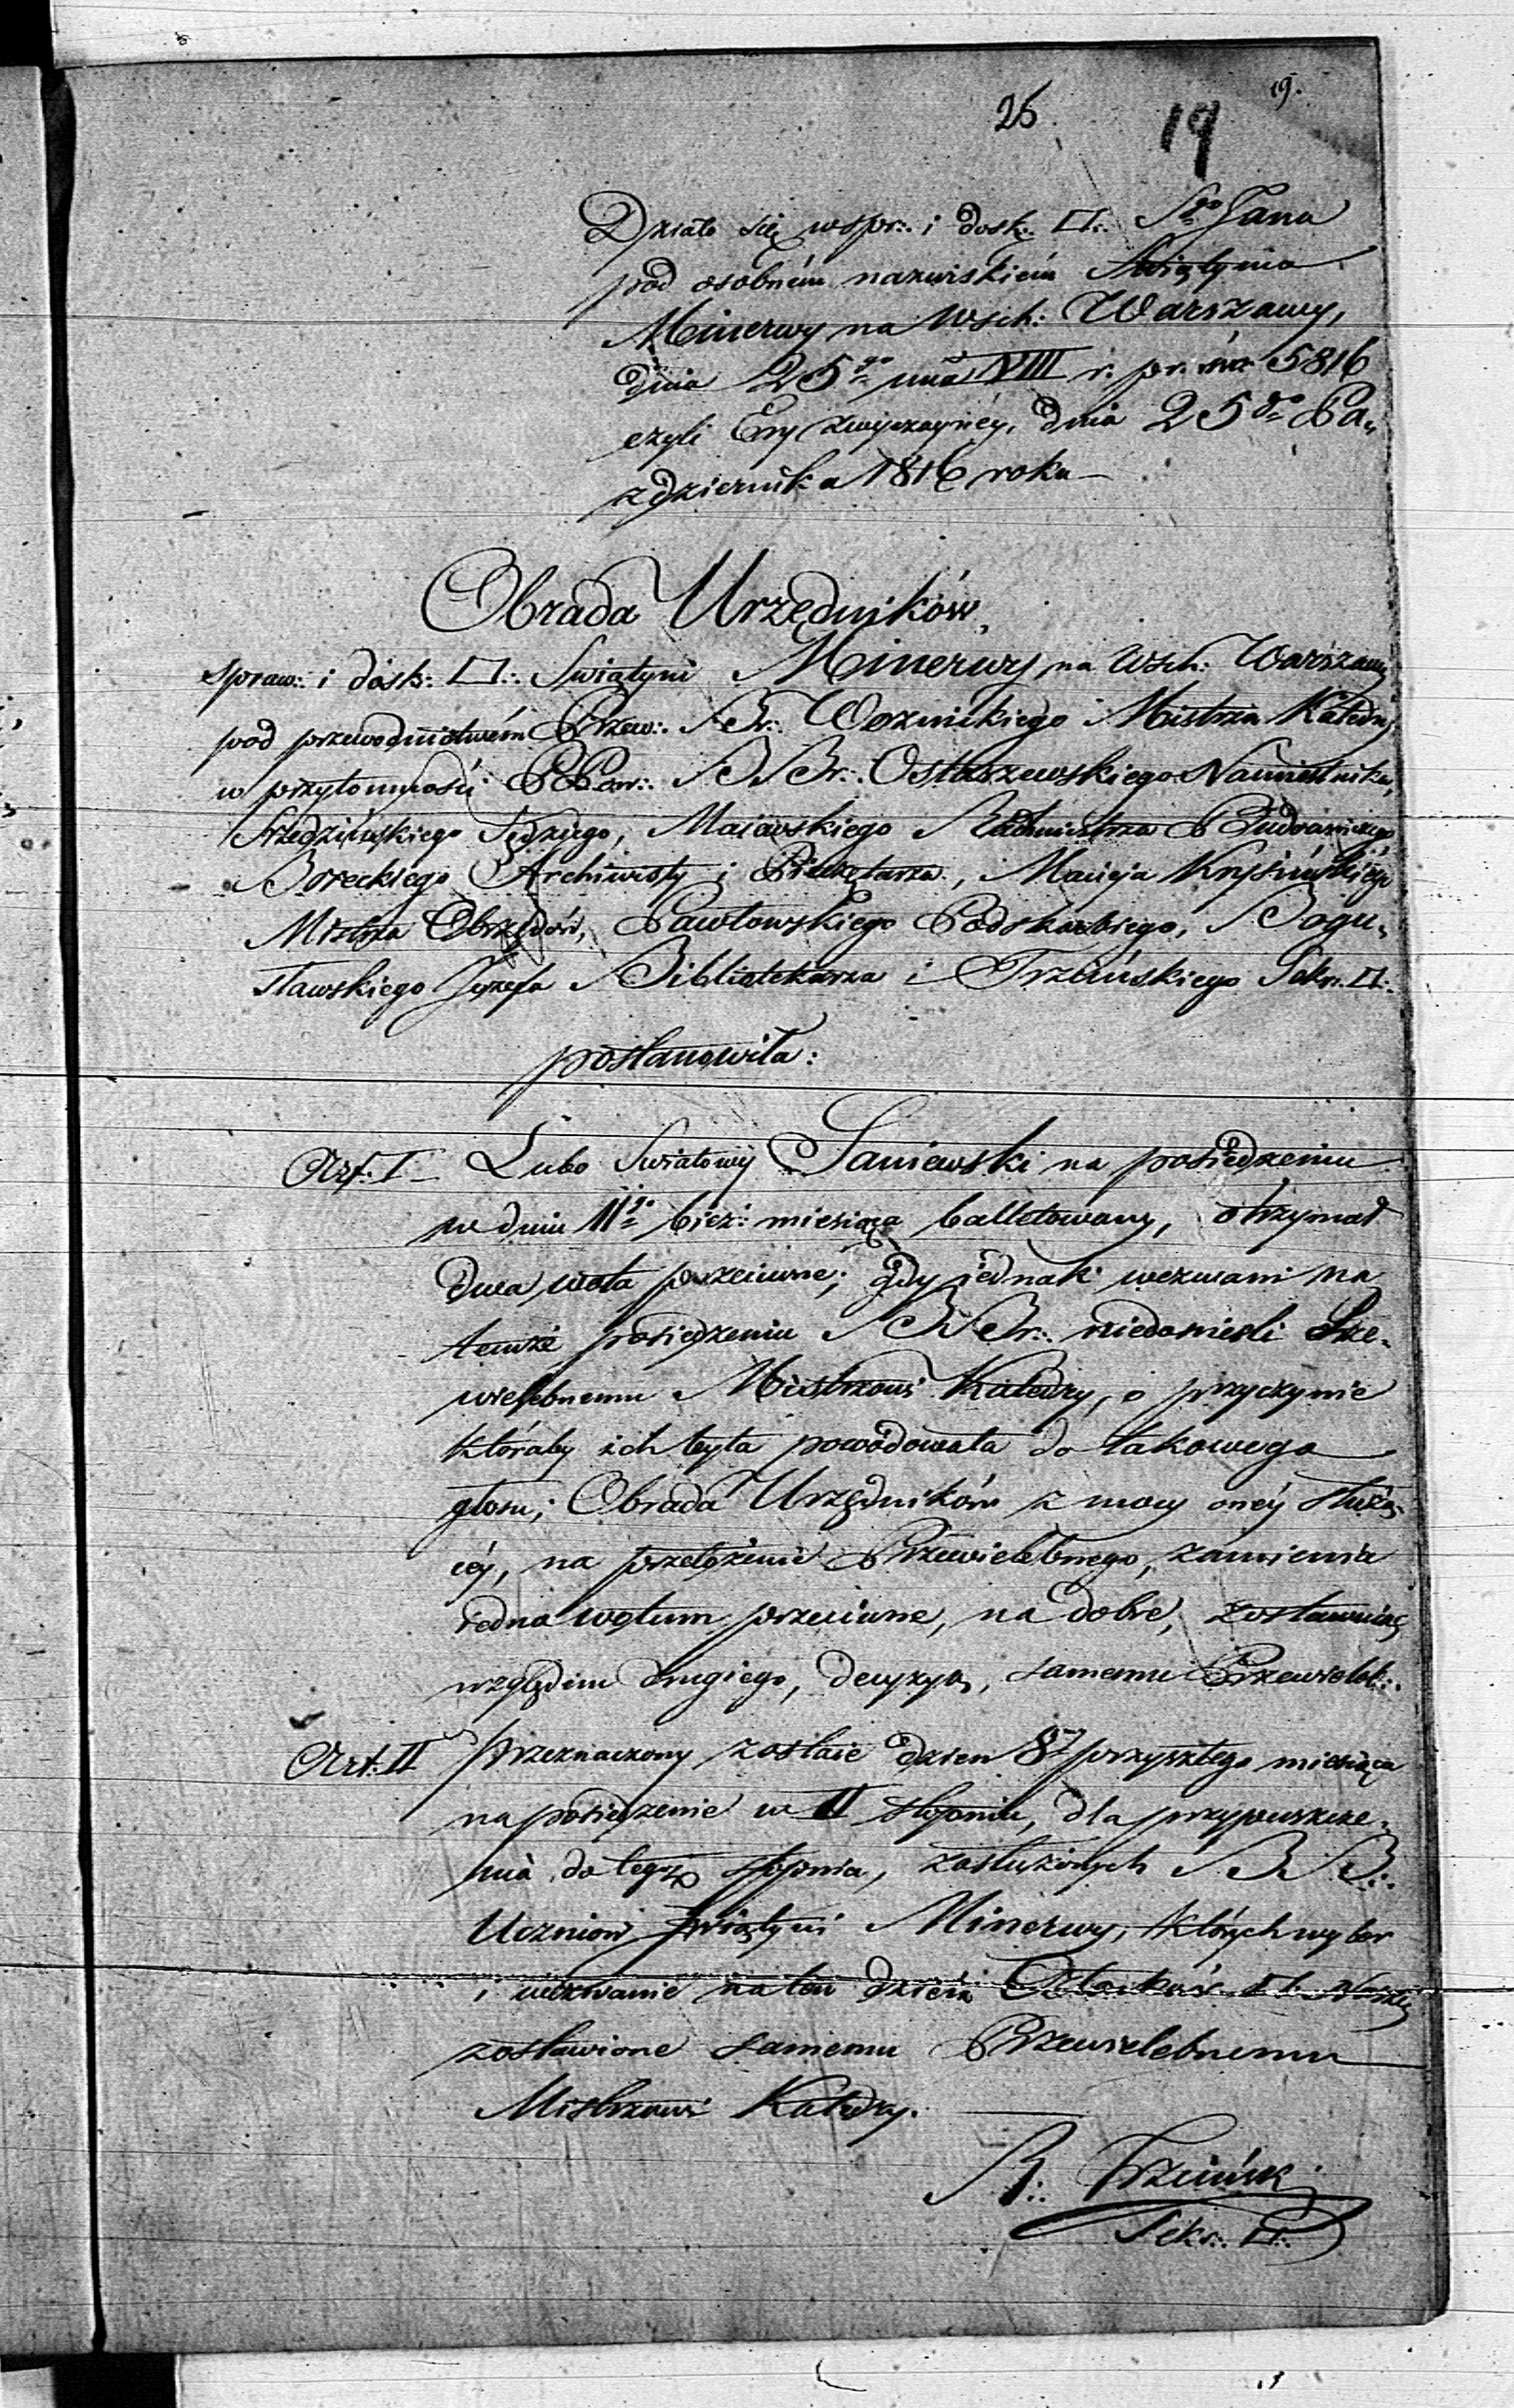 26.
19
19.
Działo się w spr∴ i dosk∴ □∴ Sgo Jana
pod osobném nazwiskiém Swiątynia
Minerwy na Wsch: Warszawy,
dnia 25go mca VIII r. pr. św. 5816
czyli Ery zwyczaynéy, dnia 25go Pa„
zdziernika 1816 roku –
Obrada Urzędników,
spraw∴ i dosk∴ □∴ Swiątyni Minerwy na Wsch: Warszawy
pod przewodnictwém Przew∴ Br∴ Woznickiego Mistrza Katedry,
w przytomności PPow∴ BBr∴ Ostaszewskiego Namiestnika,
Sędziego, Maiewskiego Budowniczego,
Boreckiego Archiwisty i Pieczętarza, Macieja Krysińskiego
Mistrza Obrzędów, Pawłowskiego Podskarbiego, Bogu„
sławskiego Józefa Bibliotekarza i Trzcińskiego Sekr. □∴
postanowiła:
Art: I – Lubo Swiatowy Saniewski na posiedzeniu
w dniu 11go bież: miesiąca balletowany, otrzymał
dwa wota przeciwne; gdy iednak wezwani na
temże posiedzeniu BBr∴ niedonieśli Prze„
wielebnemu Mistrzowi Katedry, o przyczynie
któraby ich była powodowała do takowego
głosu; Obrada Urzędników z mocy onéy służą„
céy, na przełożenie Przewielebnego, zamienia
iedno wotum przeciwne, na dobre, zostawuiąc
względem drugiego, decyzyą, samemu Przewieleb∴
Art: II Przeznaczony zostaie dzień 8y przyszłego miesiąca
na posiedzenie w II stopniu, dla przypuszcze„
nia do tegoż stopnia, zasłużonych BB∴
Uczniów Swiątyni Minerwy, których wybór
i wezwanie na ten dzień
zostawione samemu Przewielebnemu
Mistrzowi Katedry.
Trzciński
Sekr∴ □∴